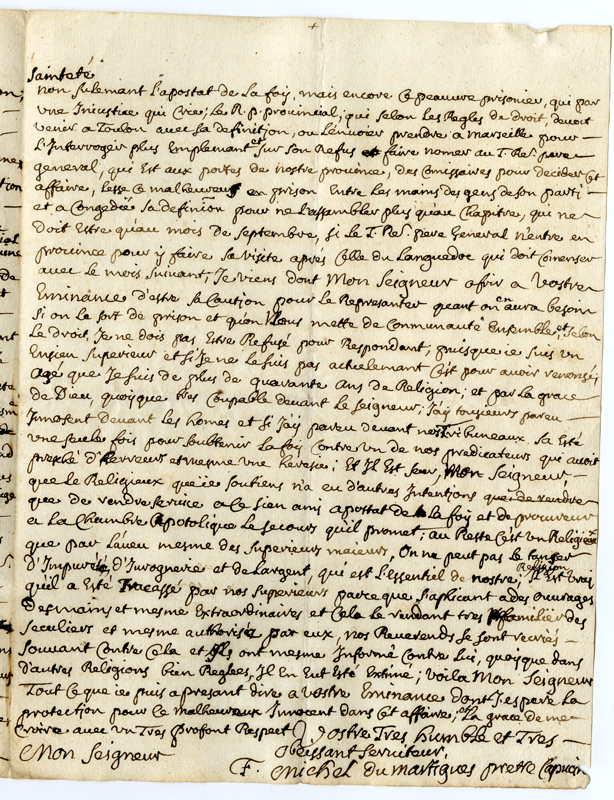 Sainteté
non sulemant l'apostat de la foy, mais encore Ce peauvre prisonier, qui par
une Injustice qui Crie; le R. p. provincial; qui selon les Regles de droit, devoit
venir a Toulon avec sa definition, ou l'envoier prendre a Marseille pour
L'Interroger plus Emplemant et sur son Refus faire nomer au T. Re. pere
general, qui Est aux portes de nostre province, des Comissaires pour decider Cet
affaire, lesse Ce malheureux en prison Entre les mains des gens de son parti
et a Congedié sa definition pour ne l'assembler plus qu'au Chapitre, qui ne
doit Estre qu'au mois de septembre, si le T. Re. pere General n'entre en
province pour y faire sa visite apres Celle du Languedoc qui doit Comenser
avec le mois suivant, Je viens dont Mon Seigneur ofrir a Vostre
Eminance d'estre sa Caution pour le Represanter quant on en aura besoin
si on le sort de prison et qu'on Nous mette de Communauté Ensemble, et selon
le droit, Je ne dois pas Estre Refusé pour Respondant; puisque ie suis un
Ensien superieur et si Je ne le suis pas actuelemant C'est pour avoir renonsé,
age que Je suis de plus de quarante ans de Religion; et par la grace
de Dieu, quoyque tres Coupable devant le seigneur; J'ay tousieurs pareu
Innosent devant les homes et si J'ay pareu devant nos Tribuneaux, sa Esté
une seule fois pour soubtenir la foy Contre un de nos predicateurs qui avoit
preché d'Erreurs et mesme une heresie; Et Il Est seur, Mon Seigneur,
que le Religieux que ie soutiens n'a eu d'autres Intentions que de rendre
que de rendre service a Ce sien ami apostat de la foy et de procureur
a la Chambre Apotolique le secours qu'il promet; au Reste C'est un Religieux
que par l'aveu mesme des superieurs maieurs, On ne peut pas le tanser
D'Impureté, d'Ivrognerie et de l'argent, qui est l'Essentiel de nostre Religion; Il Est vrai
qu'il a Esté Tracassé par nos superieurs parce que s'aplicant a des ouvrages
des mains et mesme Extraordinaires et Cela le rendant tres familier des
seculiers et mesme authorisés par eux, nos Reverends se sont recriés
souvant Contre Cela et Ils ont mesme Informé Contre Lui, quoyque dans
d'autres Religions bien Reglees, Il En Eut Esté Estimé; voila Mon Seigneur
Tout Ce que ie puis apresant dire a Vostre Eminance dont J'espere la
protection pour Ce malheureux Innocent dans Cet affaire; et la grace de me
Croire avec un Tres profont Respect
Vostre Tres humble et Tres
obeissant serviteur,
Mon Seigneur
F. Michel du Martigues prettre Capucin